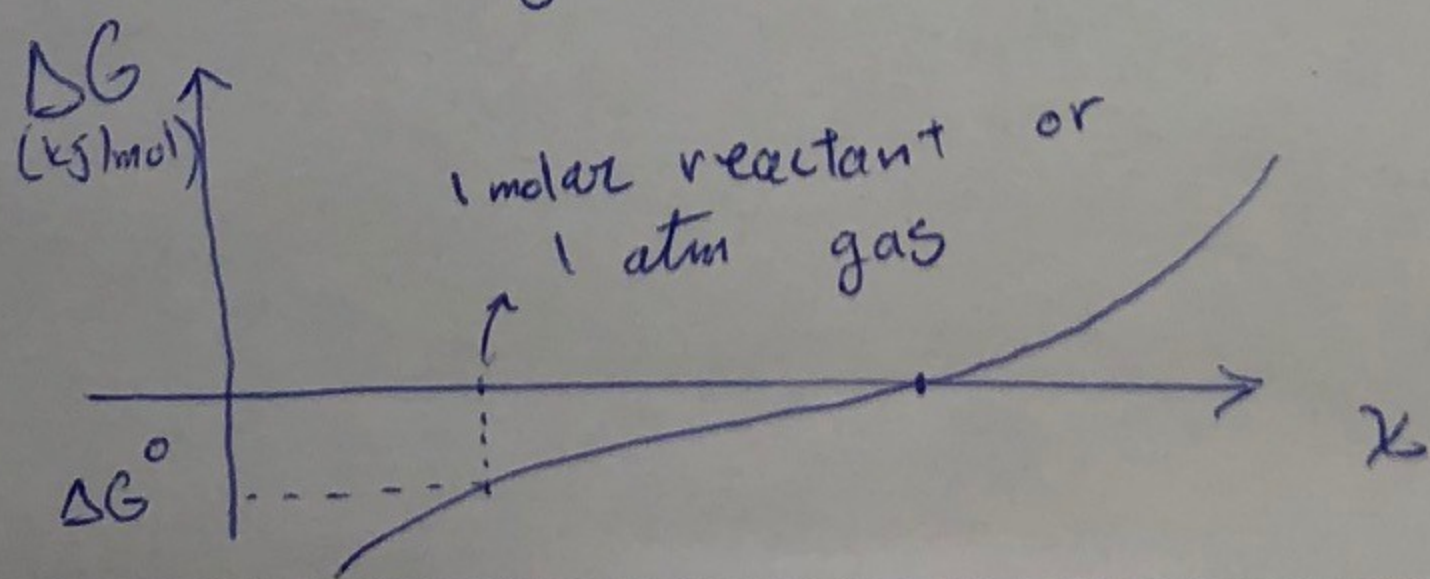 ΔG
(kJ/mol)
1 molar reactant or
1 atm gas
x
ΔG°